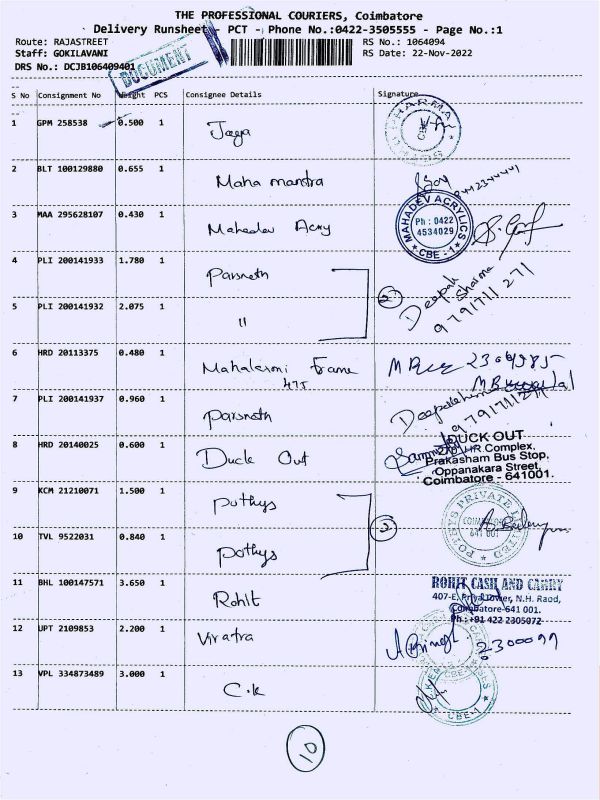 THE PROFESSIONAL COURIERS, Coimbatore
Delivery Runsheet - PCT - Phone No.:0422-3505555 - Page No.:1
Route: RAJASTREET RS No.: 1064094
Staff: GOKILAVANI RS Date: 22-Nov-2022
DRS No.: DCJB106409401
DOCUMENT
S No Consignment No Weight PCS Consignee Details Signature
1 GPM 258538 0.500 1 Jaya
PHARMA CBE
2 BLT 100129880 0.655 1 Maha mantra
9442344441
3 MAA 295628107 0.430 1 Mahadev Acry
MAHADEV ACRYLICS Ph : 0422 4534029 CBE - 1
4 PLI 200141933 1.780 1 Parsneth
2 Deepak Sharma 9791711271
5 PLI 200141932 2.075 1 "
6 HRD 20113375 0.480 1 Mahalaxmi Frame
475
7 PLI 200141937 0.960 1 Parsneth
8 HRD 20140025 0.600 1 Duck Out
DUCK OUT
HR Complex,
Prakasham Bus Stop,
Oppanakara Street,
Coimbatore - 641001.
9 KCM 21210071 1.500 1 Pothys
2
POTHYS PRIVATE LIMITED COIMBATORE 641 001
10 TVL 9522031 0.840 1 Pothys
11 BHL 100147571 3.650 1 Rohit
ROHIT CASH AND CARRY
407-E, Priya Tower, N.H. Raod,
Coimbatore-641 001.
Ph : +91 422 2305072
12 UPT 2109853 2.200 1 Viratra
2300099
13 VPL 334873489 3.000 1 C.K
CBE-1
10